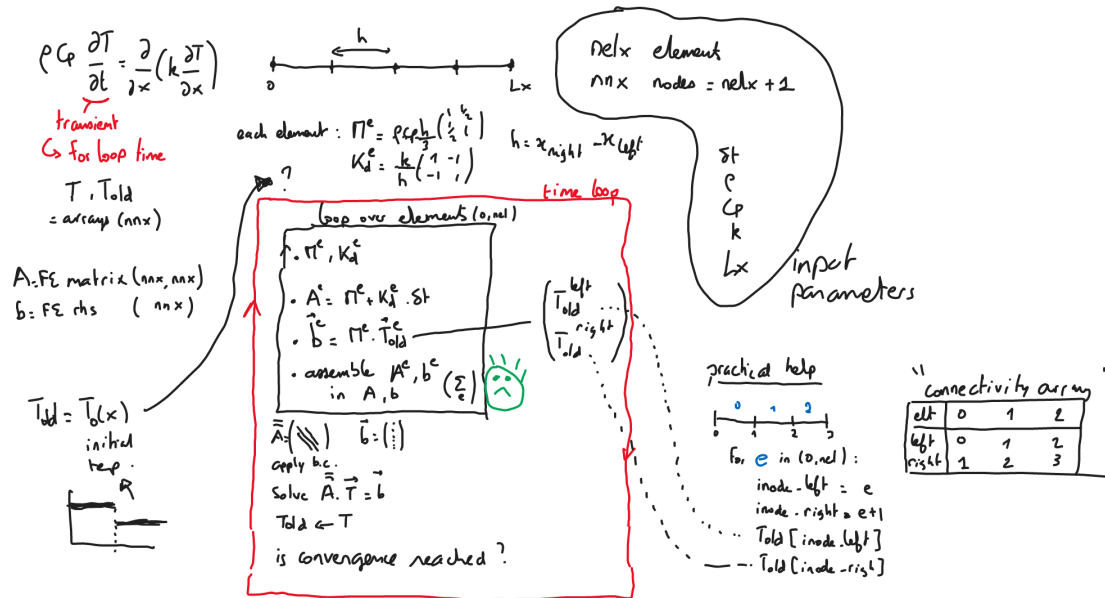 ρCp ∂T/∂t = ∂/∂x (k ∂T/∂x)
transient
↳ for loop time
T, Told
= arrays (nnx)
A=FE matrix (nnx, nnx)
b= FE rhs (nnx)
Told = T0(x)
initial
temp.
h
0 Lx
each element : M^e = ρcp h/3 (1 1/2 1/2 1)
Kd^e = k/h (1 -1 -1 1)
h = x right - x left
?
time loop
loop over elements (0, nel)
• M^e, Kd^e
• A^e = M^e + Kd^e . δt
• b^e = M^e . Told^e
• assemble A^e, b^e (Σ e)
in A, b
A = ( ) b = ( )
apply b.c.
Solve A . T = b
Told ← T
is convergence reached ?
(Told left
Told right)
nelx element
nnx nodes = nelx + 1
δt
ρ
Cp
k
Lx
input
parameters
practical help
0 1 2
0 1 2 3
For e in (0, nel) :
inode_left = e
inode_right = e+1
Told [inode_left]
Told [inode_right]
"connectivity array"
elt 0 1 2
left 0 1 2
right 1 2 3